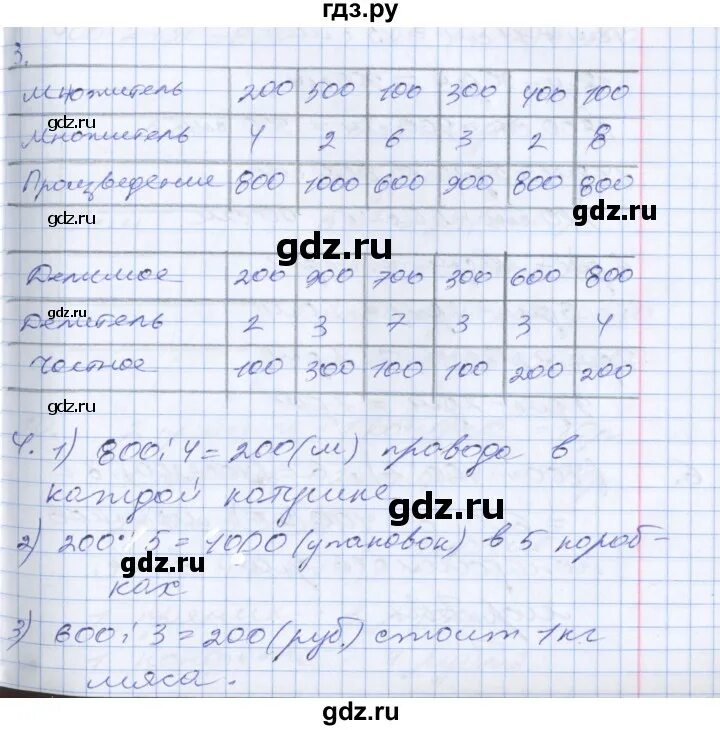 гдз.ру
3.
Множитель 200 500 100 300 400 100
gdz.ru
Множитель 4 2 6 3 2 8
Произведение 800 1000 600 900 800 800
gdz.ru
gdz.ru
gdz.ru
Делимое 200 900 700 300 600 800
gdz.ru
Делитель 2 3 7 3 3 4
Частное 100 300 100 100 200 200
gdz.ru
4. 1) 800 : 4 = 200 (м) провода в
каждой катушке
gdz.ru
2) 200 · 5 = 1000 (упаковок) в 5 короб-
gdz.ru
ках
3) 600 : 3 = 200 (руб.) стоит 1 кг
мяса.
gdz.ru
gdz.ru